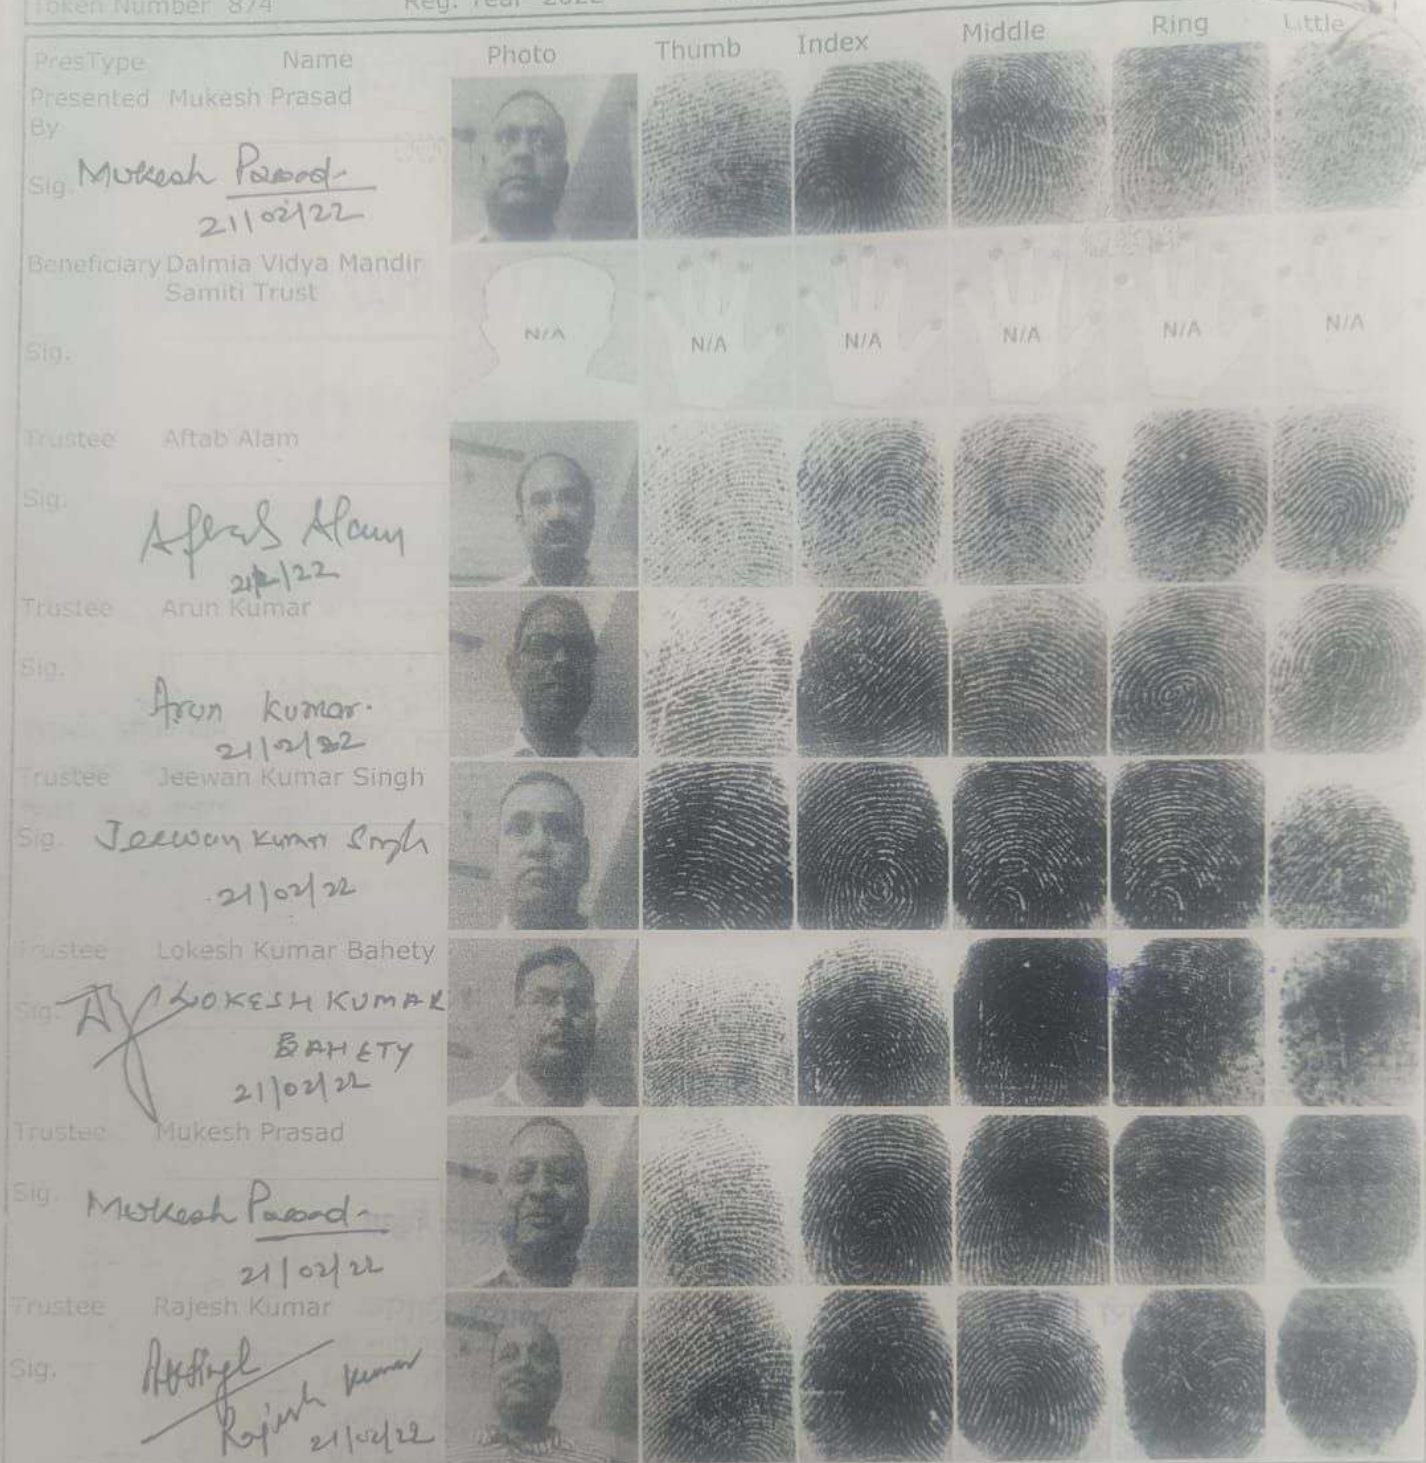 Token Number 874 Reg. Year 2022
PresType Name Photo Thumb Index Middle Ring Little
Presented Mukesh Prasad
By
Sig. Mukesh Prasad
21/02/22
Beneficiary Dalmia Vidya Mandir
Samiti Trust
N/A N/A N/A N/A N/A N/A
Sig.
Trustee Aftab Alam
Sig.
Aftab Alam
21/2/22
Trustee Arun Kumar
Sig.
Arun Kumar.
21/2/22
Trustee Jeewan Kumar Singh
Sig. Jeewan Kumar Singh
21/02/22
Trustee Lokesh Kumar Bahety
Sig. LOKESH KUMAR
BAHETY
21/02/22
Trustee Mukesh Prasad
Sig. Mukesh Prasad
21/02/22
Trustee Rajesh Kumar
Sig.
Rajesh Kumar
21/02/22